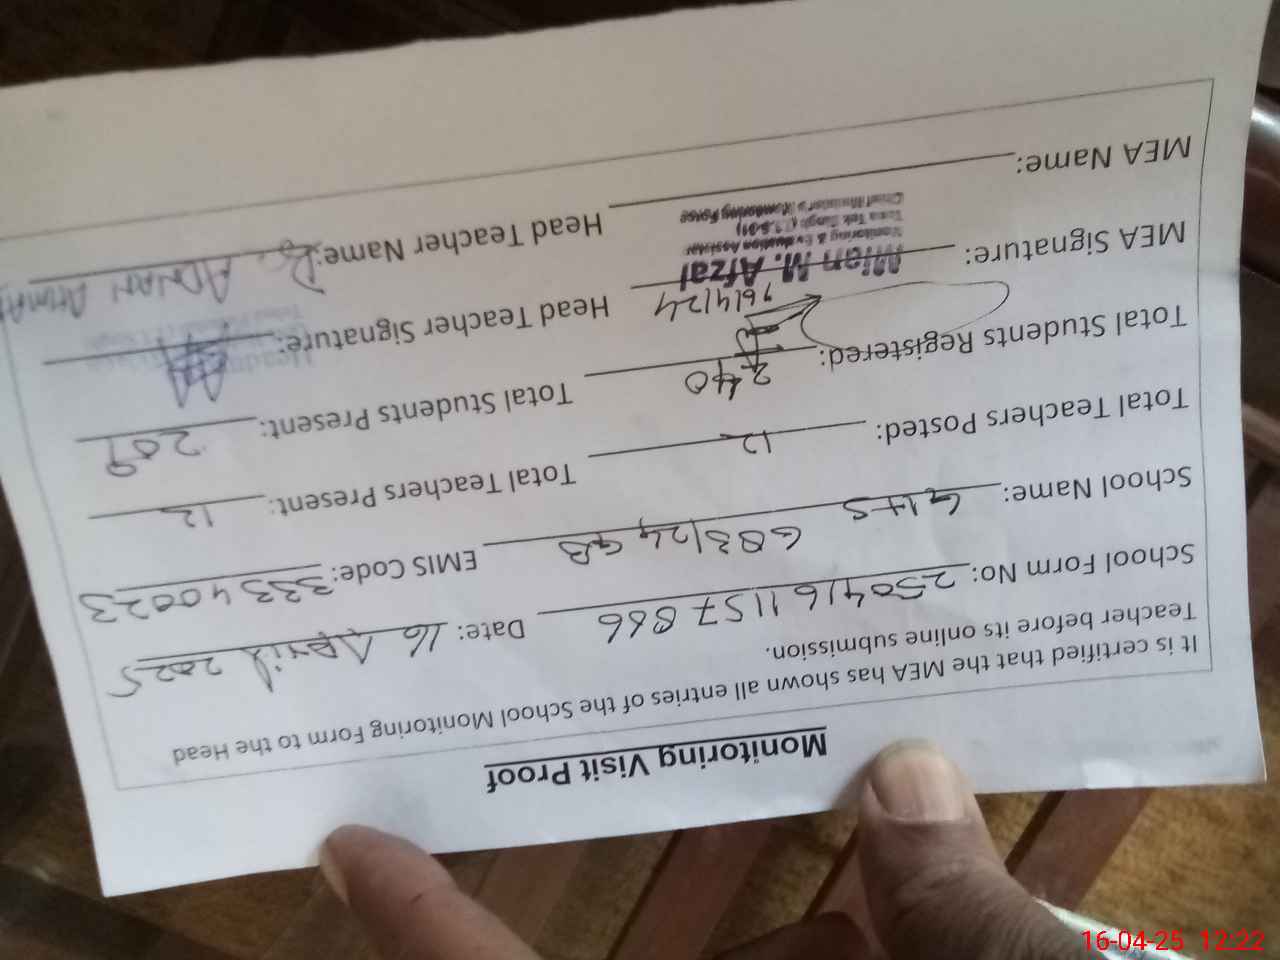 Monitoring Visit Proof
It is certified that the MEA has shown all entries of the School Monitoring Form to the Head
Teacher before its online submission.
School Form No: 2504161157866 Date: 16 April 2025
School Name: GHS 683/24 GB EMIS Code: 33340023
Total Teachers Posted: 12 Total Teachers Present: 12
Total Students Registered: 240 Total Students Present: 209
MEA Signature: Head Teacher Signature:
Mian M. Afzal
Monitoring & Evaluation Assistant
Toba Tek Singh
Chief Minister's Monitoring Force
MEA Name: Head Teacher Name: Dr. ADNAN
16-04-25 12:22